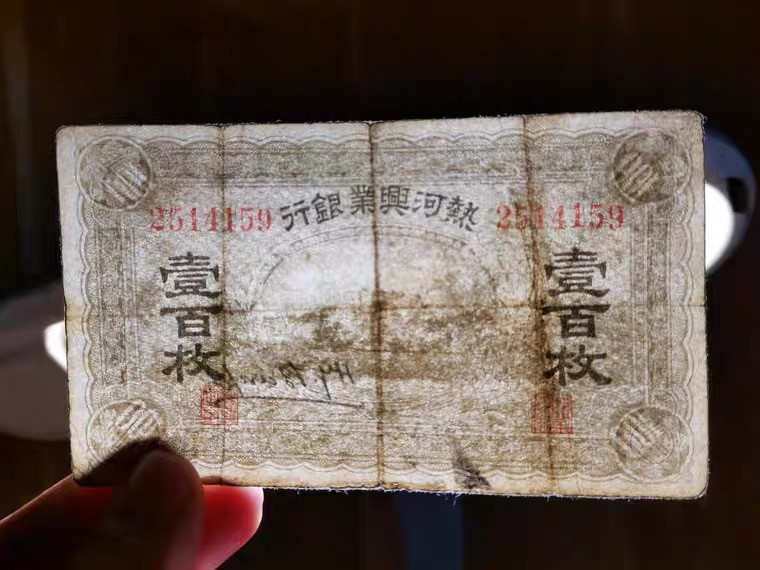 熱河興業銀行
2514159
2514159
壹百枚
壹百枚